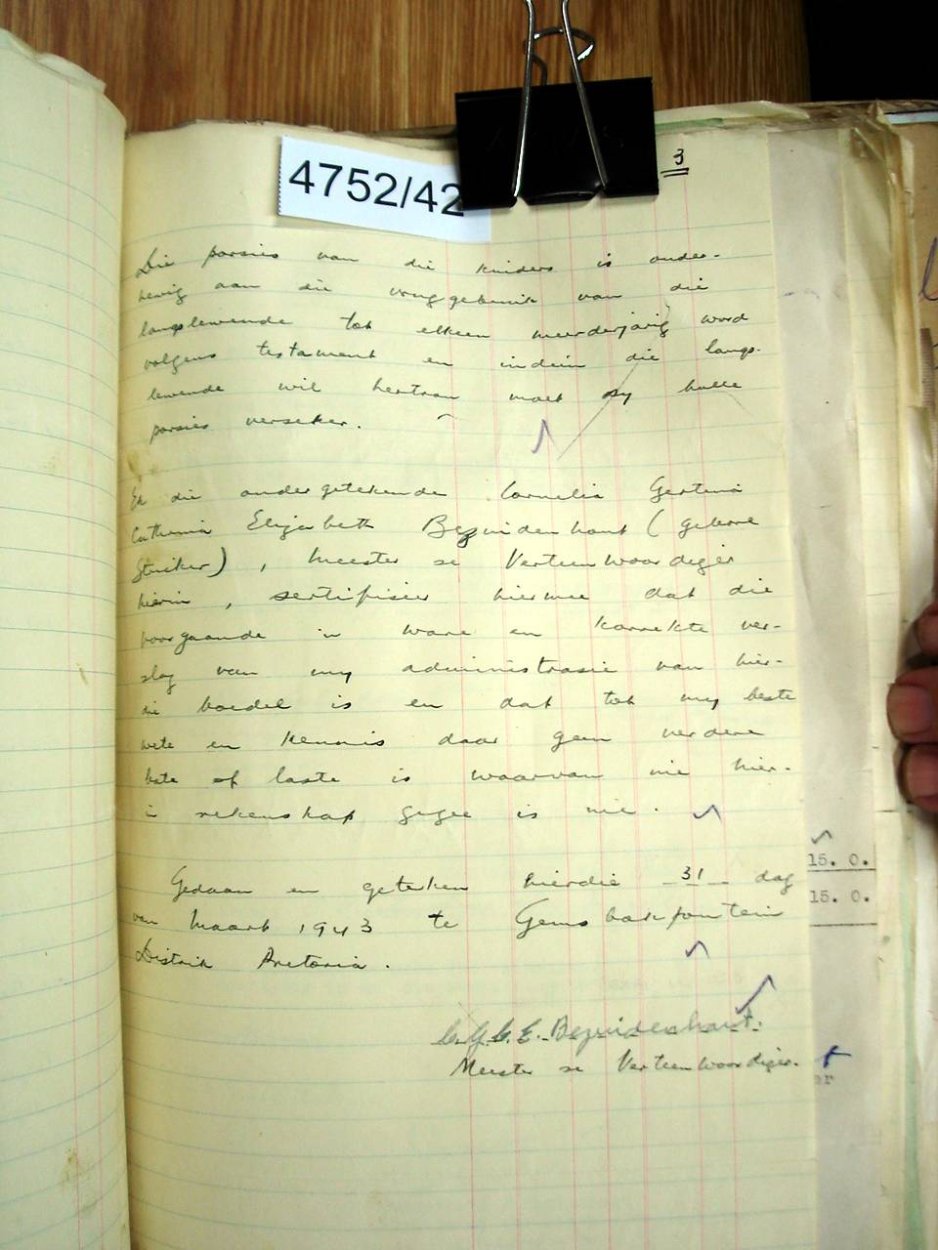 4752/42
3
Die porsies van die kinders is onder-
hewig aan die vruggebruik van die
langslewende tot elkeen meerderjarig word
volgens testament en indien die langs-
lewende wil hertrou moet sy hulle
porsies verseker.
Ek die ondergetekende Cornelia Gertina
Catherina Elizabeth Bezuidenhout (gebore
Struker), Meester se Verteenwoordiger
hierin, sertifiseer hiermee dat die
voorgaande 'n ware en korrekte ver-
slag van my administrasie van hier-
die boedel is en dat tot my beste
wete en kennis daar geen verdere
bate of laste is waarvan nie hier-
in rekenskap gegee is nie.
Gedaan en geteken hierdie 31 dag
van Maart 1943 te Gemsbokfontein
Distrik Pretoria.
C.G.C.E. Bezuidenhout.
Meester se Verteenwoordiger.
15. 0.
15. 0.
er